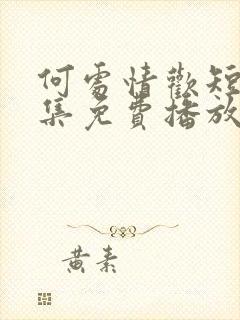 何處情歡短
集免費播放
黃素